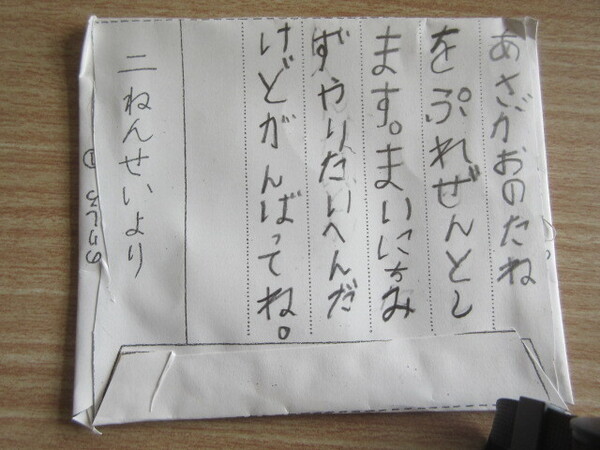 あさがおのたね
をぷれぜんとし
ます。まいにちみ
ずやりたいへんだ
けどがんばってね。
二ねんせいより